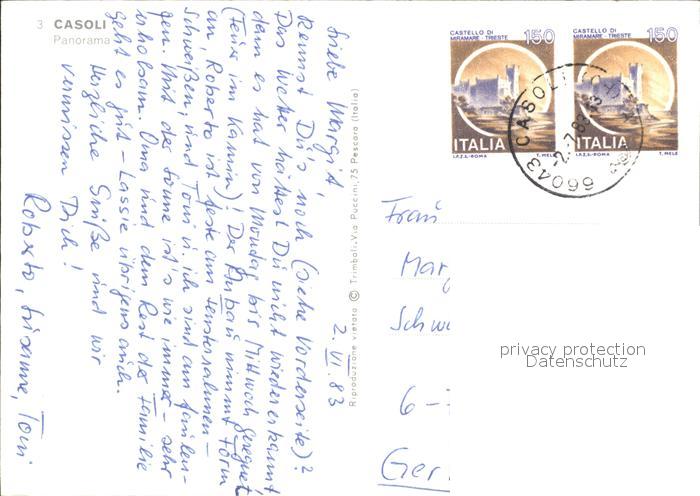 3 CASOLI
Panorama
2. VI. 83
Liebe Margit,
Kennst Du's noch (siehe Vorderseite)?
Das Wetter hättest Du nicht wiedererkannt
denn es hat von Montag bis Mittwoch geregnet
(Feuer im Kamin)! Der Anbau nimmt Form
an, Roberto ist feste am Fensterrahmen-
Schweißen, und Toni u. ich sind am faulen-
zen. Mit der Sonne ist's wie immer - sehr
erholsam. Oma und dem Rest der Familie
geht es gut - Lassie übrigens auch.
Herzliche Grüße und wir
vermissen Dich!
Roberto, Susanne, Toni
Riproduzione vietata © Trimboli-Via Puccini,75 Pescara (Italia)
CASTELLO DI
MIRAMARE - TRIESTE
150
ITALIA
I.P.Z.S.-ROMA T. MELE
CASTELLO DI
MIRAMARE - TRIESTE
150
ITALIA
I.P.Z.S.-ROMA T. MELE
66043 CASOLI
Frau
Marg
Schw
6 -
Ger
privacy protection
Datenschutz